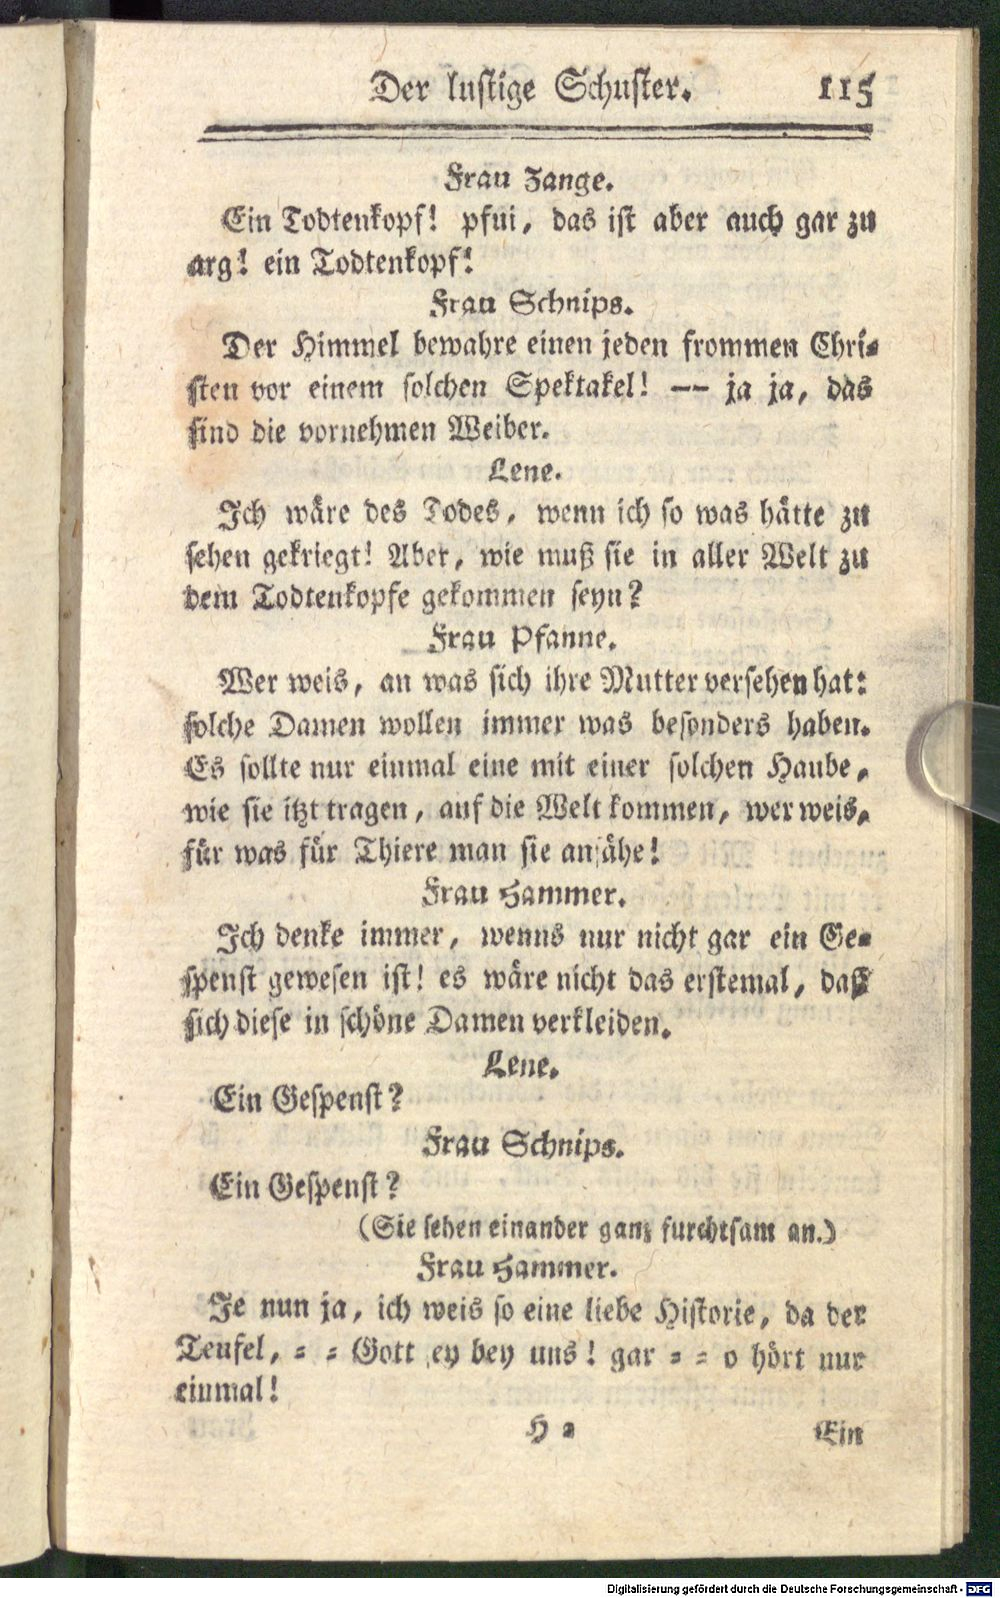 Der lustige Schuster. 115
Frau Zange.
Ein Todtenkopf! pfui, das ist aber auch gar zu
arg! ein Todtenkopf!
Frau Schnips.
Der Himmel bewahre einen jeden frommen Chri-
sten vor einem solchen Spektakel! -- ja ja, das
sind die vornehmen Weiber.
Lene.
Ich wäre des Todes, wenn ich so was hätte zu
sehen gekriegt! Aber, wie muß sie in aller Welt zu
dem Todtenkopfe gekommen seyn?
Frau Pfanne.
Wer weis, an was sich ihre Mutter versehen hat:
solche Damen wollen immer was besonders haben.
Es sollte nur einmal eine mit einer solchen Haube,
wie sie itzt tragen, auf die Welt kommen, wer weis,
für was für Thiere man sie ansähe!
Frau Hammer.
Ich denke immer, wenns nur nicht gar ein Ge-
spenst gewesen ist! es wäre nicht das erstemal, daß
sich diese in schöne Damen verkleiden.
Lene.
Ein Gespenst?
Frau Schnips.
Ein Gespenst?
(Sie sehen einander ganz furchtsam an.)
Frau Hammer.
Je nun ja, ich weis so eine liebe Historie, da der
Teufel, = = Gott sey bey uns! gar = = o hört nur
einmal!
H 2 Ein
Digitalisierung gefördert durch die Deutsche Forschungsgemeinschaft - DFG